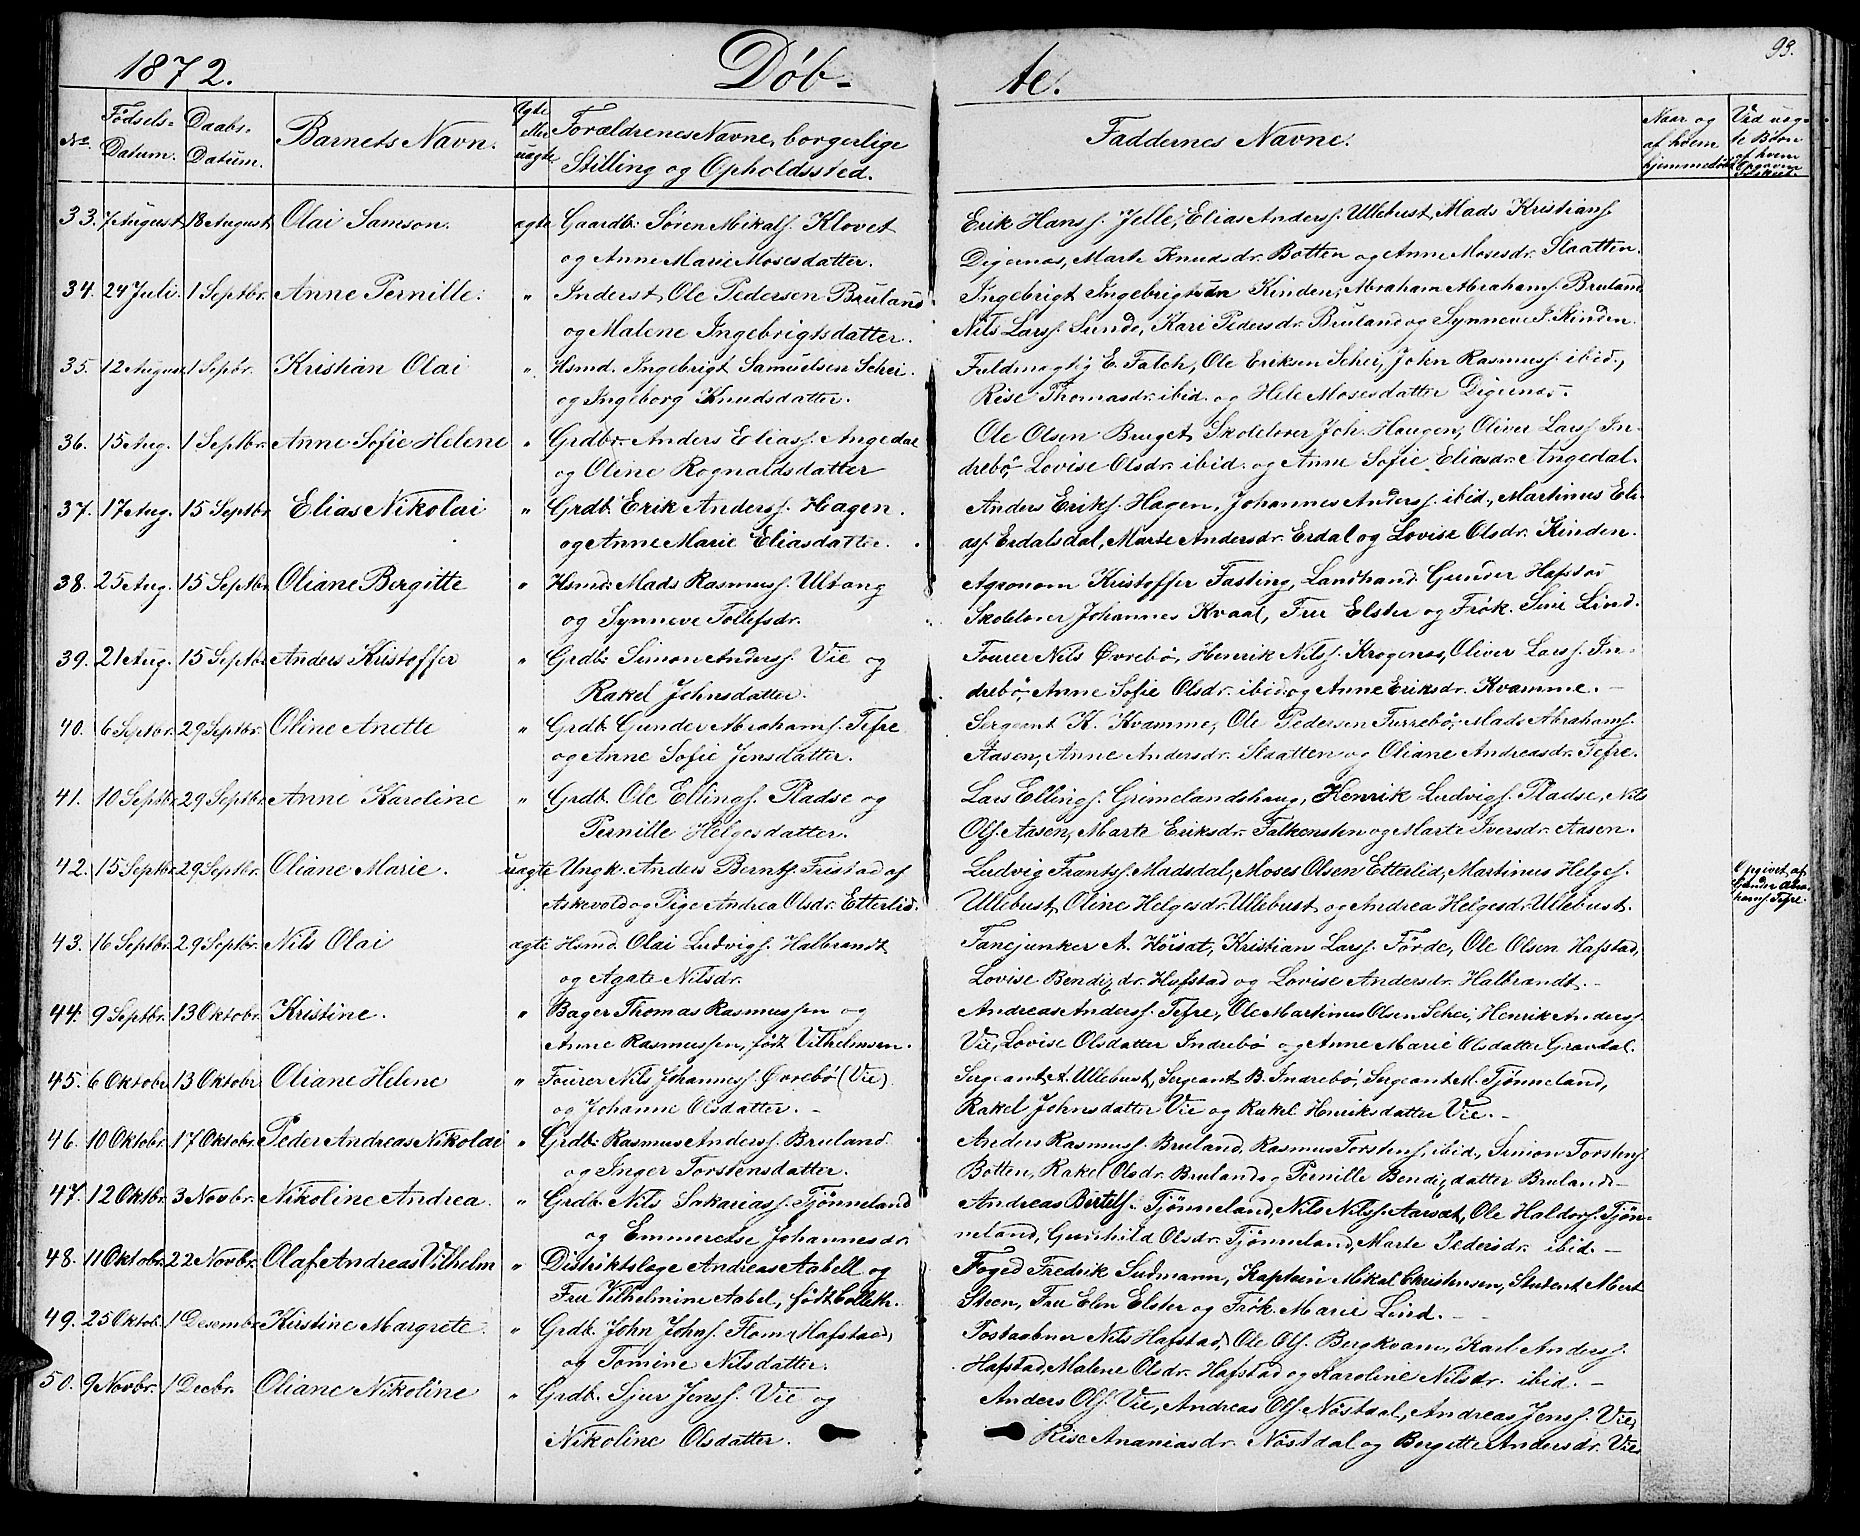 93.
1872. Døb- te.
No. Fødsels- Datum. Daabs- Datum. Barnets Navn. Ægte eller uægte Forældrenes Navne, borgerlige Stilling og Opholdssted. Faddernes Navne. Naar og af hvem hjemmedøbt Ved uæg- te Børn af hvem Opgaven
33. 7 August 18 August Olai Samson. ægte Gaardb: Søren Mikals. Klovet Erik Hanss. Jelle, Elias Anderss. Ullebust, Mads Kristians.
og Anne Marie Mosesdatter. Digernæs, Marte Knudsdr. Botten og Anne Mosesdr. Slaatten.
34. 24 Juli. 1 Septbr. Anne Pernille. " Inderst Ole Pedersen Bruland Ingebrigt Ingebrigtsen Kinden, Abraham Abrahams. Bruland
og Malene Ingebrigtsdatter. Nils Larss. Sunde, Kari Pedersdr. Bruland og Synneve I. Kinden.
35. 12 August 1 Sepbr. Kristian Olai " Hsmd. Ingebrigt Samuelsen Schei. Fuldmægtig E. Falch, Ole Eriksen Schei, John Rasmuss. ibid.,
og Ingeborg Knudsdatter. Rise Thomasdr. ibid. og Hele Mosesdatter Digernæs.
36. 15 Aug. 1 Septbr. Anne Sofie Helene " Grdbr. Anders Eliass. Angedal Ole Olsen Bruget, Skolelærer Joh. Haugen, Oliver Larss. In-
og Oline Rognaldsdatter drebø, Lovise Olsdr. ibid. og Anne Sofie Eliasdr. Angedal.
37. 17 Aug. 15 Septbr. Elias Nikolai " Grdb. Erik Anderss. Hagen. Anders Eriks. Hagen, Johannes Anderss. ibid., Martinus Eli-
og Anne Marie Eliasdatter. ass. Erdalsdal, Marte Andersdr. Erdal og Lovise Olsdr. Kinden.
38. 25 Aug. 15 Septbr. Oliane Bergitte " Hsmd: Mads Rasmuss. Ultang Agronom Kristoffer Fasting, Landhand. Gunder Hafstad
og Synneve Tollefsdr. Skolelærer Johannes Kvaal, Fru Elster og Frøk. Sine Lind.
39. 21 Aug. 15 Septbr. Anders Kristoffer " Grdb. Simon Anderss. Vie og Fourer Nils Øvrebø, Henrik Nilss. Krogenæs, Oliver Larss. In-
Rakel Johnsdatter. drebø, Anne Sofie Olsdr. ibid og Anne Eriksdr. Kvamme.
40. 6 Septbr. 29 Septbr. Oline Anette " Grdb. Gunder Abrahams. Tefre Sergeant K. Kvamme, Ole Pedersen Furrebø, Mads Abrahams.
og Anne Sofie Jensdatter. Aasen, Anne Andersdr. Slaatten og Oliane Andreasdr. Tefre.
41. 10 Septbr. 29 Septbr. Anne Karoline " Grdb. Ole Ellings. Pladse og Lars Ellings. Grimelandshaug, Henrik Ludvigs. Pladse, Nils
Pernille Helgesdatter. Ols. Aasen, Marte Eriksdr. Falkensten og Marte Iversdr. Aasen.
42. 15 Septbr. 29 Septbr. Oliane Marie. uægte Ungk. Anders Bernts. Fristad af Ludvig Frantss. Madsdal, Moses Olsen Etterlid, Martinus Helges. Opgivet af
Askevold og Pige Andrea Olsdr. Etterlid. Ullebust, Oline Helgesdr. Ullebust og Andrea Helgesdr. Ullebust. Gunder Abra- hams. Tefre.
43. 16 Septbr. 29 Septbr. Nils Olai ægte Hsmd. Olai Ludvigs. Halbrandt Fanejunker A. Høisæt, Kristians Larss. Førde, Ole Olsen Hafstad,
og Agate Nilsdr. Lovise Bendixdr. Hafstad og Lovise Andersdr. Halbrandt.
44. 9 Septbr. 13 Oktobr. Kristine. " Bager Thomas Rasmussen og Andreas Anderss. Tefre, Ole Martinus Olsen Schei, Henrik Anderss.
Anne Rasmussen, født Vilhelmsen. Vie, Lovise Olsdatter Indrebø og Anne Marie Olsdatter Gravdal.
45. 6 Oktobr 13 Oktobr Oliane Helene " Fourer Nils Johanness. Øvrebø (Vie) Sergeant A. Ullebust, Sergeant B. Indrebø, Sergeant M. Tjønneland,
og Johanne Olsdatter. Rakel Johnsdatter Vie og Rakel Henriksdatter Vie.
46. 10 Oktobr. 17 Oktobr. Peder Andreas Nikolai " Grdb: Rasmus Anderss. Bruland. Anders Rasmuss. Bruland, Rasmus Torstens. ibid., Simon Torstens.
og Inger Torstensdatter. Botten, Rakel Olsdr. Bruland og Pernille Bendixdatter Bruland.
47. 12 Oktbr. 3 Novbr. Nikoline Andrea. " Grdb. Nils Sakariass. Tjønneland Andreas Bertels. Tjønneland, Nils Nilss. Aarsæt, Ole Haldors. Tjøn-
og Emmeretse Johannesdr. neland, Gunhild Olsdr. Tjønneland, Marte Pedersdr. ibid.
48. 11 Oktobr. 22 Novbr. Olaf Andreas Vilhelm " Distriktslæge Andreas Aabell og Foged Fredrik Sudmann, Kaptein Mikal Christensen, Student Mert
Fru Vilhelmine Aabel, født Colleth. Steen, Fru Elen Elster og Frøk. Marie Lind.
49. 25 Oktob. 1 Desembr. Kirstine Margrete. " Grdb. John Johns. Flom (Hafstad) Postaabner Nils Hafstad, Ole Ols. Bergkvam, Karl Anderss.
og Tomine Nilsdatter. Hafstad, Malene Olsdr. Hafstad og Karoline Nilsdr. ibid.
50. 9 Novbr. 1 Decbr. Oliane Nikoline " Grdb. Sjur Jenss. Vie og Anders Ols. Vie, Andreas Ols. Nøstdal, Andreas Jenss. Vie,
Nikoline Olsdatter. Rise Ananiasdr. Nøstdal og Bergitte Andersdr. Vie